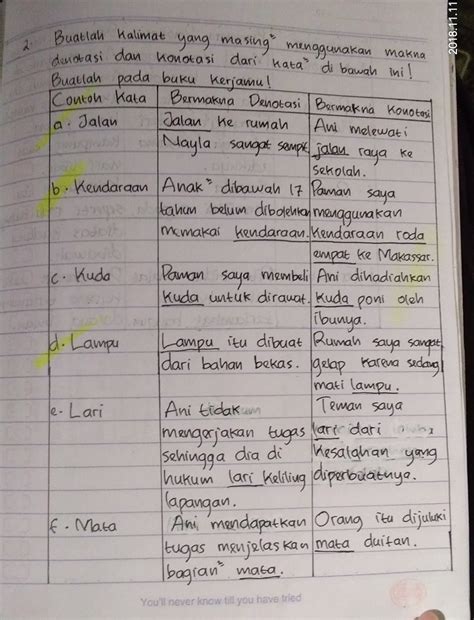 2018.11.11
2. Buatlah kalimat yang masing² menggunakan makna
denotasi dan konotasi dari kata² di bawah ini!
Buatlah pada buku kerjamu!
Contoh Kata | Bermakna Denotasi | Bermakna Konotasi
a. Jalan | Jalan ke rumah | Ani melewati
Nayla sangat sempit | jalan raya ke
sekolah.
b. Kendaraan | Anak² dibawah 17 | Paman saya
tahun belum dibolehkan | menggunakan
memakai kendaraan. | Kendaraan roda
empat ke Makassar.
c. Kuda | Paman saya membeli | Ani dihadiahkan
Kuda untuk dirawat. | Kuda poni oleh
ibunya.
d. Lampu | Lampu itu dibuat | Rumah saya sangat
dari bahan bekas. | gelap karena sedang
mati lampu.
e. Lari | Ani tidak | Teman saya
mengerjakan tugas | lari dari
sehingga dia di | kesalahan yang
hukum lari keliling | diperbuatnya.
lapangan.
f. Mata | Ani mendapatkan | Orang itu dijuluki
tugas menjelaskan | mata duitan.
bagian² mata.
You'll never know till you have tried